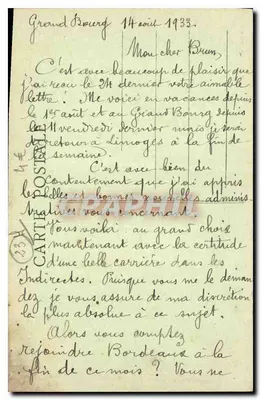 Grand Bourg 14 août 1933.
Mon cher Brun,
C'est avec beaucoup de plaisir que
j'ai reçu le 24 dernier votre aimable
lettre ! Me voici en vacances depuis
le 1er août et au Grand Bourg depuis
le 11 vendredi dernier mais je serai
de retour à Limoges à la fin de
semaine.
C'est avec bien du
contentement que j'ai appris
les bonnes nouvelles adminis
tratives vous concernant.
Vous voilà au grand choix
maintenant avec la certitude
d'une belle carrière dans les
Indirectes. Puisque vous me le deman
dez je vous assure de ma discrétion
la plus absolue à ce sujet.
Alors vous comptez
rejoindre Bordeaux à la
fin de ce mois ? Vous ne
CARTE POSTALE
234
4€